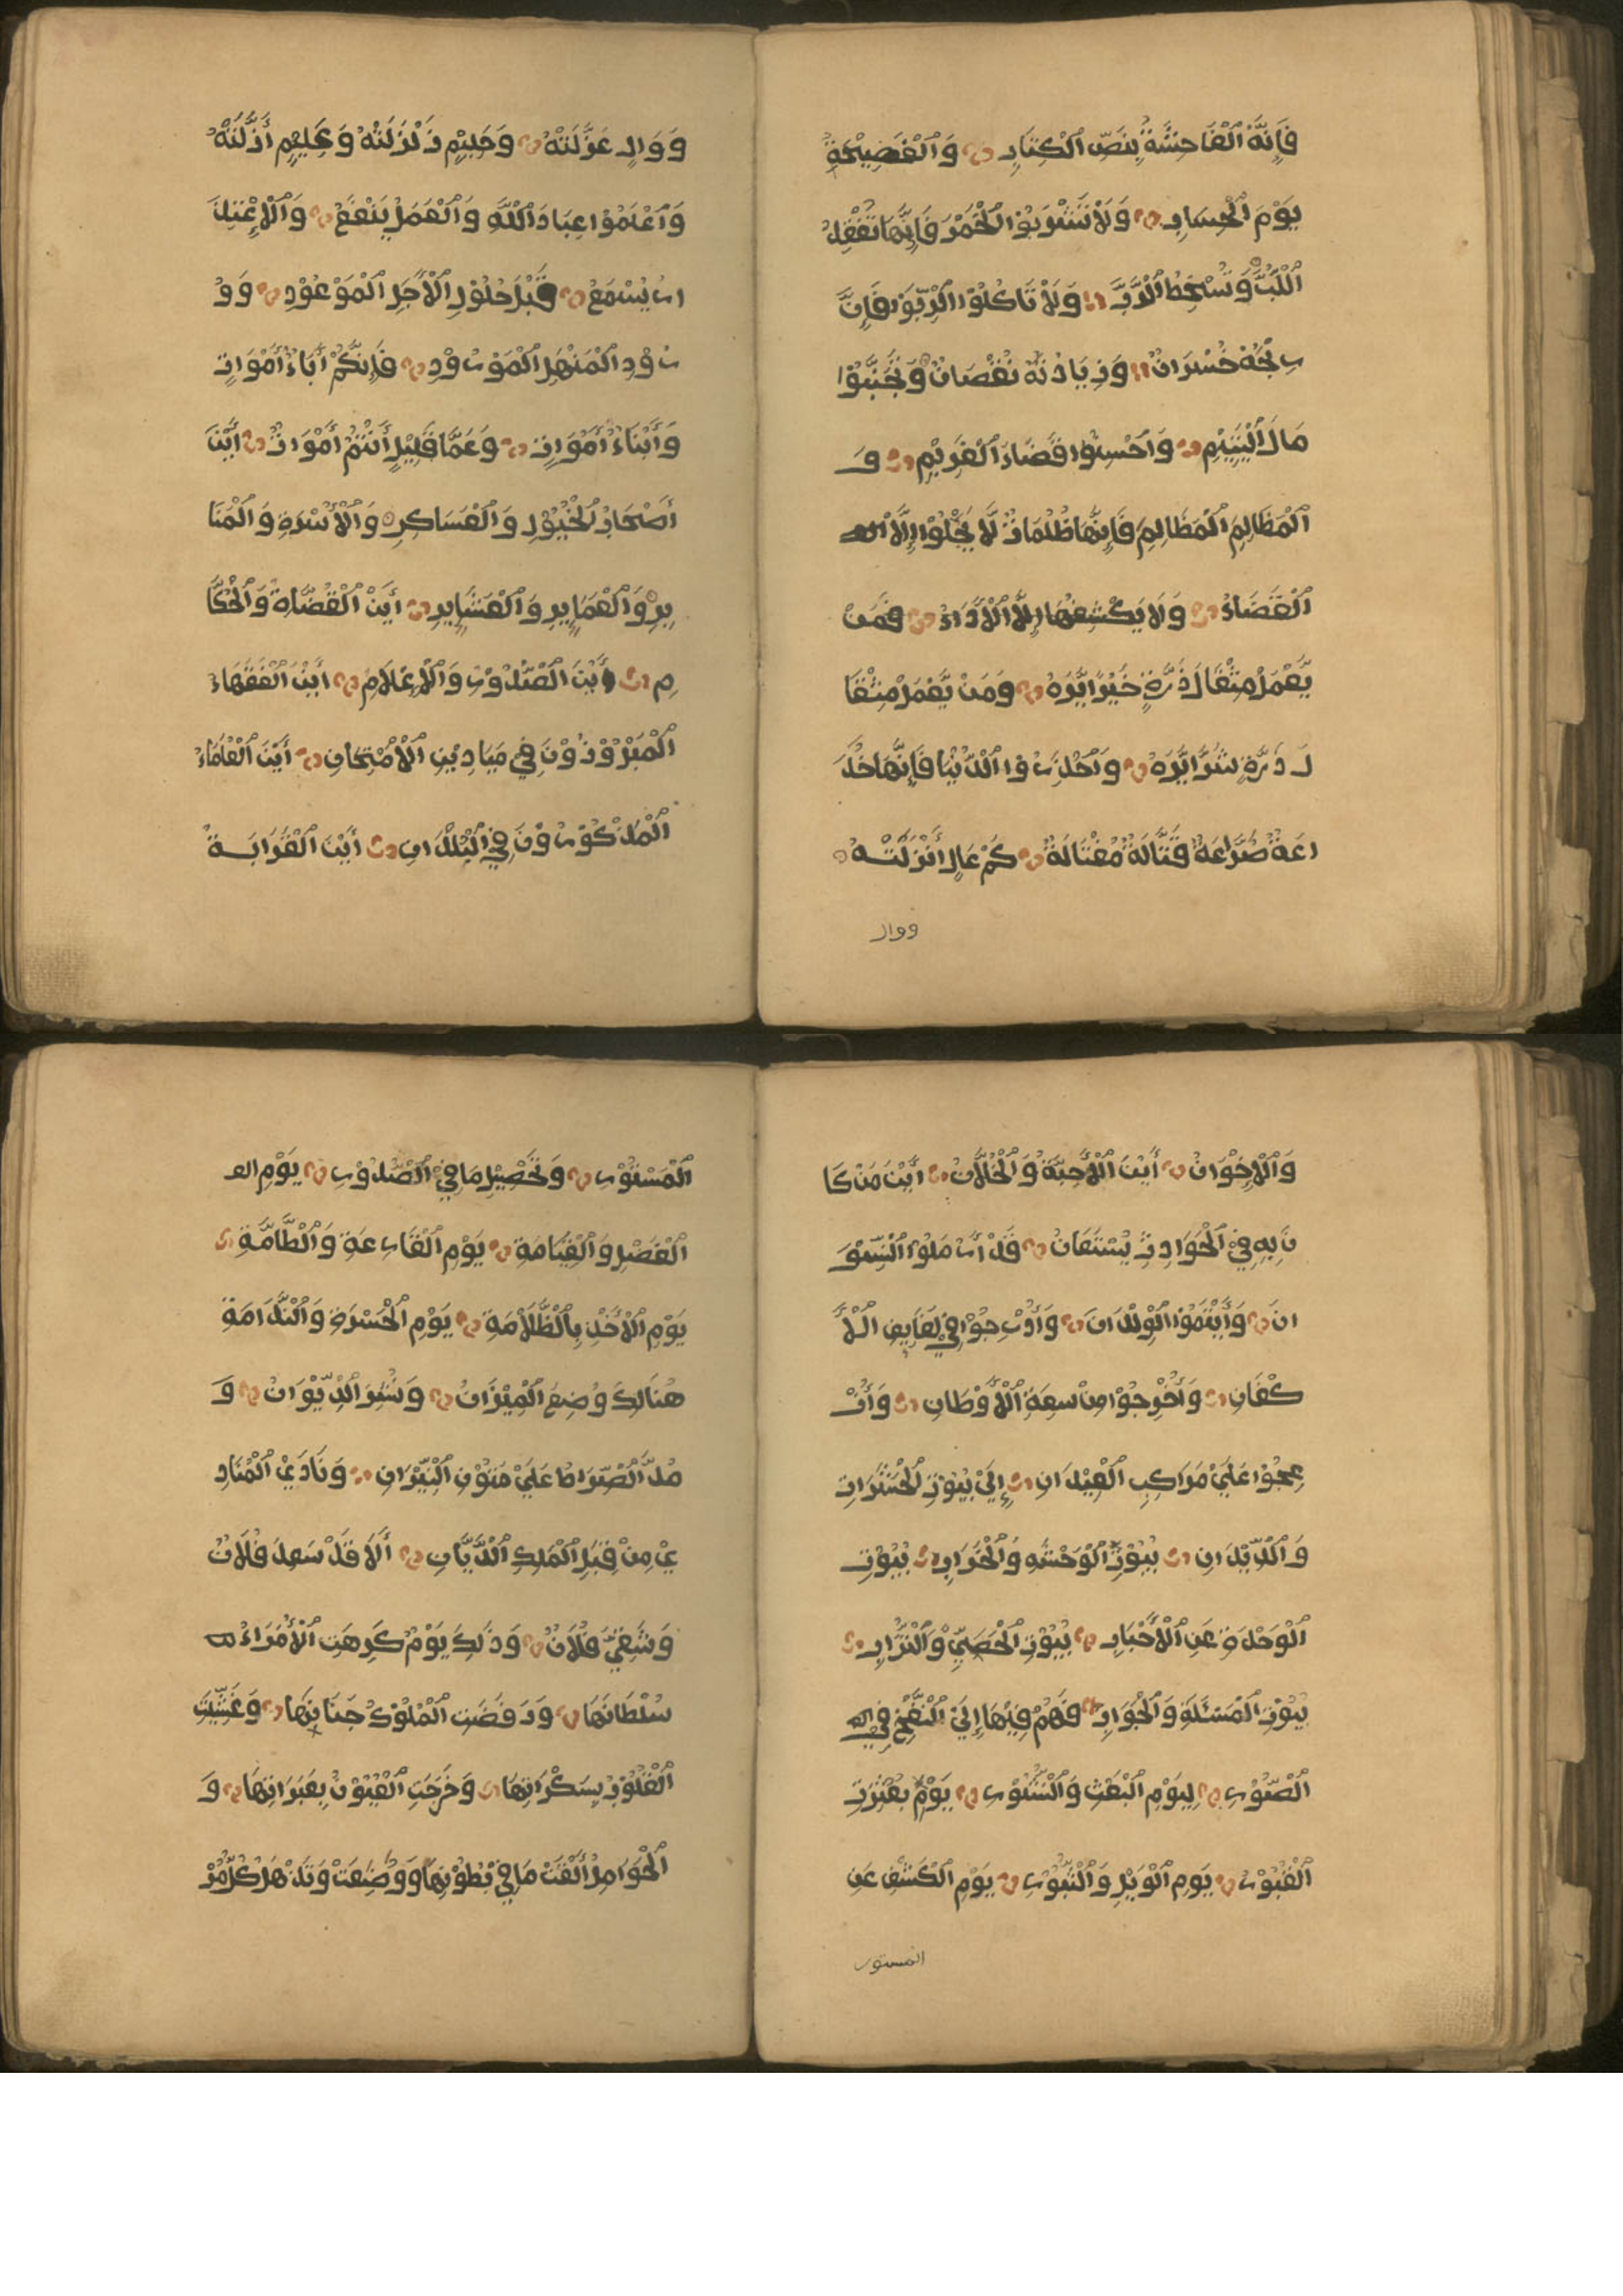 فَإِنَّهُ ٱلْفَاحِشَةُ بِنَصِّ ٱلْكِتَابِ وَٱلْفَضِيْحَةُ
يَوْمَ ٱلْحِسَابِ وَلَا تَشْرَبُوْا ٱلْخَمْرَ فَإِنَّهَا تُغْفِلُ
ٱللُّبَّ وَتُسْخِطُ ٱلرَّبَّ وَلَا تَاكُلُوْا ٱلرِّبَوٰا فَإِنَّ
رِبْحَهُ خُسْرَانٌ وَزِيَادَتَهُ نُقْصَانٌ وَتَجَنَّبُوْا
مَالَ ٱلْيَتِيْمِ وَاَحْسِنُوْا قَضَاءَ ٱلْغَرِيْمِ وَ
ٱلْمَظَالِمَ ٱلْمَظَالِمَ فَإِنَّهَا ظُلُمَاتٌ لَا يَجْلُوْا إِلَّا ٱلـ
ٱلْقَضَاءُ وَلَا يَكْشِفُهَا إِلَّا ٱلْأَدَاءُ فَمَنْ
يَّعْمَلْ مِثْقَالَ ذَرَّةٍ خَيْرًا يَّرَهُ وَمَنْ يَّعْمَلْ مِثْقَا
لَ ذَرَّةٍ شَرًّا يَّرَهُ وَٱحْذَرُوْا ٱلدُّنْيَا فَإِنَّهَا خَدَّ
اعَةٌ صَرَّاعَةٌ قَتَّالَةٌ مُغْتَالَةٌ كَمْ عَالٍ أَنْزَلَتْهُ
ووال
وَوَالٍ عَزَّلَتْهُ وَحَلِيْمٍ زَلْزَلَتْهُ وَعَلِيْمٍ أَذَلَّتْهُ
وَٱعْلَمُوْا عِبَادَ ٱللَّهِ وَٱلْعَمَلُ يَنْفَعُ وَٱلْاِعْتِذَ
ارُ يُسْمَعُ قَبْلَ حُلُوْلِ ٱلْأَجَلِ ٱلْمَوْعُوْدِ وَوُ
رُوْدِ ٱلْمَنْهَلِ ٱلْمَوْرُوْدِ فَإِنَّكُمْ أَبَاءُ أَمْوَاتٍ
وَأَبْنَاءُ أَمْوَاتٍ وَعَمَّا قَلِيْلٍ أَنْتُمْ أَمْوَاتٌ أَيْنَ
أَصْحَابُ ٱلْخُيُوْلِ وَٱلْعَسَاكِرِ وَٱلْأَسْرَةِ وَٱلْمَنَا
بِرِ وَٱلْعَمَايِرِ وَٱلْعَشَايِرِ أَيْنَ ٱلْقُضَاةُ وَٱلْحُكَّا
مِ أَيْنَ ٱلصُّدُوْرِ وَٱلْأَعْلَامِ أَيْنَ ٱلْفُقَهَاءُ
ٱلْمُبَرِّزُوْنَ فِيْ مَيَادِيْنِ ٱلْاِمْتِحَانِ أَيْنَ ٱلْعُلَمَاءُ
ٱلْمَذْكُوْرُوْنَ فِي ٱلْبُلْدَانِ أَيْنَ ٱلْقَرَابَةُ
وَٱلْإِخْوَانُ أَيْنَ ٱلْأَحِبَّةُ وَٱلْخُلَّانُ أَيْنَ مَنْ كَا
نَ بِهِ فِيْ ٱلْحَوَادِثِ يُسْتَعَانُ قَدْ أَرْمَلُوْا ٱلنِّسْوَ
انَ وَأَيْتَمُوْا ٱلْوِلْدَانَ وَأُدْرِجُوْا فِيْ لَفَايِفِ ٱلْأَ
كْفَانِ وَأُخْرِجُوْا مِنْ سِعَةِ ٱلْأَوْطَانِ وَأُزْ
عِجُوْا عَلَيْ مَرَاكِبِ ٱلْعِيْدَانِ إِلَيْ بُيُوْتِ ٱلْحَشَرَاتِ
وَٱلدِّيْدَانِ بُيُوْتِ ٱلْوَحْشَةِ وَٱلْخَرَابِ بُيُوْتِ
ٱلْوَحْدَةِ عَنِ ٱلْأَحْبَابِ بُيُوْتِ ٱلْحَصَيِّ وَٱلتُّرَابِ
بُيُوْتِ ٱلْمَسْئَلَةِ وَٱلْجَوَابِ فَهُمْ فِيْهَا إِلَيْ ٱلنَّفْخِ فِي ٱلـ
ٱلصُّوْرِ لِيَوْمِ ٱلْبَعْثِ وَٱلنُّشُوْرِ يَوْمَ بُعْثِرَتِ
ٱلْقُبُوْرُ يَوْمِ ٱلْوَيْلِ وَٱلثُّبُوْرِ يَوْمِ ٱلْكَشْفِ عَنِ
المستور
ٱلْمَسْتُوْرِ وَتَحْصِيْلِ مَا فِيْ ٱلصُّدُوْرِ يَوْمِ الف
ٱلْفَصْلِ وَٱلْقِيَامَةِ يَوْمِ ٱلْقَارِعَةِ وَٱلطَّامَّةِ
يَوْمِ ٱلْأَخْذِ بِٱلظَّلَامَةِ يَوْمِ ٱلْحَسْرَةِ وَٱلنَّدَامَةِ
هُنَالِكَ وُضِعَ ٱلْمِيْزَانُ وَنُشِرَ ٱلدِّيْوَانُ وَ
مُدَّ ٱلصِّرَاطُ عَلَيْ مُتُوْنِ ٱلنِّيْرَانِ وَنَادَيْ ٱلْمُنَادِ
يْ مِنْ قِبَلِ ٱلْمَلِكِ ٱلدَّيَّانِ أَلَا قَدْ سَعِدَ فُلَانٌ
وَشَقِيَ فُلَانٌ وَذَلِكَ يَوْمٌ كَرِهَتِ ٱلْأُمَرَاءُ
سُلْطَانَهَا وَرَفَضَتِ ٱلْمُلُوْكُ جَنَابِهَا وَغَشِّيَتِ
ٱلْقُلُوْبُ بِسَكْرَاتِهَا وَخَرَجَتِ ٱلْعُيُوْنُ بِعَبَرَاتِهَا وَ
ٱلْحَوَامِلُ أَلْقَتْ مَا فِيْ بُطُوْنِهَا وَوَضَعَتْ وَتَذْهَلُ كُلُّ مُرْ